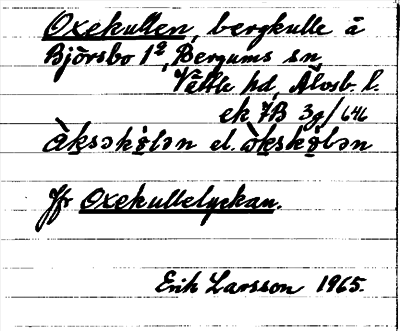 Oxekullen, bergkulle å
Björsbo 1º, Bergums sn,
Vättle hd, Älvsb. l.
ek 7B 3g/646
el.
Jfr Oxekullelyckan.
Erik Larsson 1965.